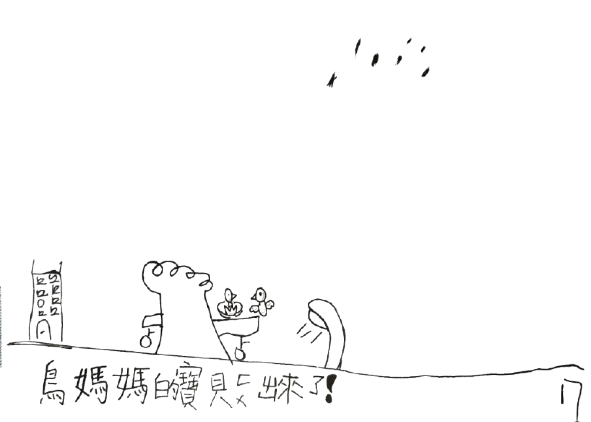 鳥媽媽的寶貝ㄈㄨ出來了!
17